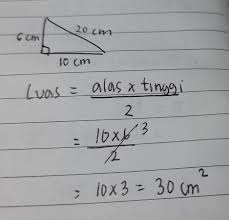 6 cm
20 cm
10 cm
Luas = alas x tinggi
2
= 10 x 6 3
2
= 10 x 3 = 30 cm²